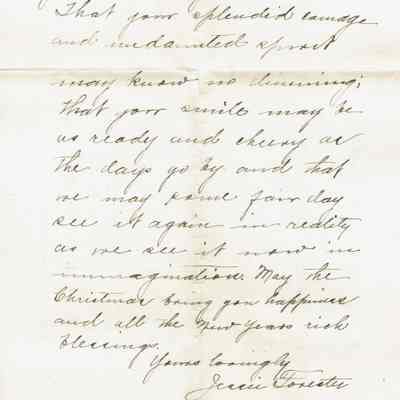 That your splendid courage
and undaunted spirit
may know no dimming;
That your smile may be
as ready and cheery as
the days go by and that
we may some fair day
see it again in reality
as we see it now in
immagination. May the
Christmas bring you happiness
and all the New Years rich
blessings.
Yours lovingly
Jessie Forester